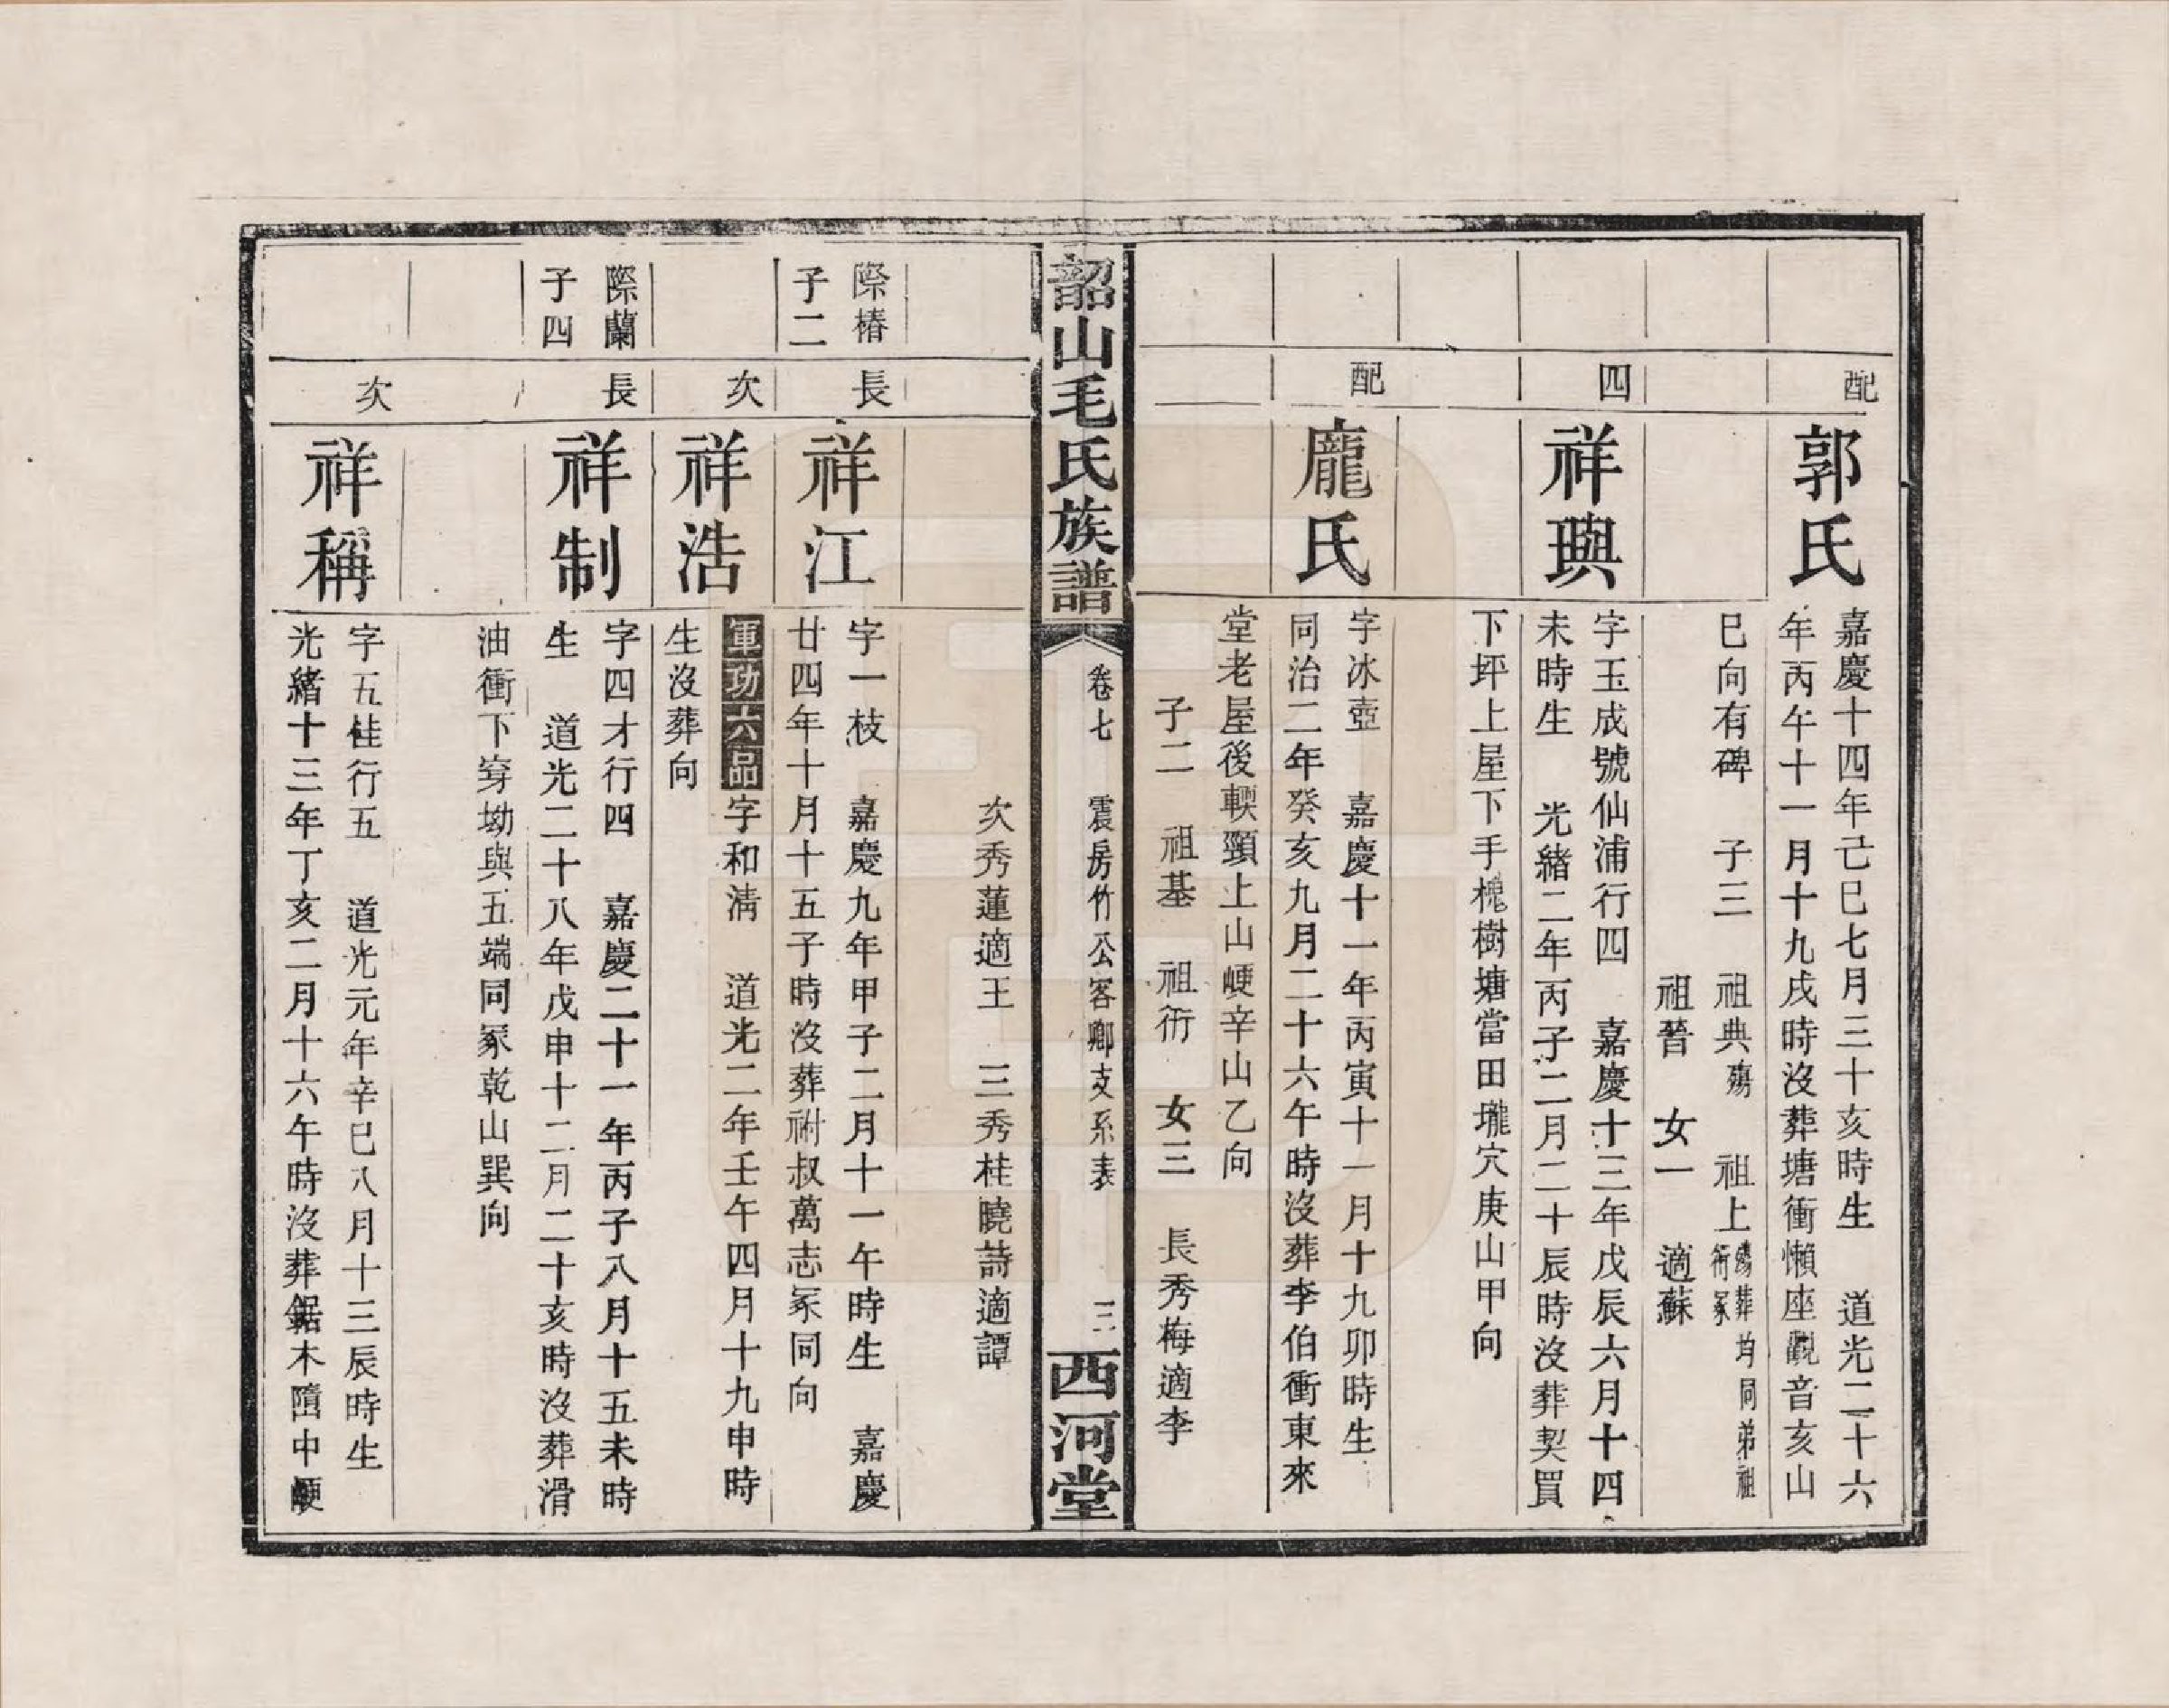 配
郭氏
嘉慶十四年己巳七月三十亥時生　道光二十六
年丙午十一月十九戌時沒葬塘衝懶座觀音亥山
巳向有碑　子三　祖典殤　祖上殤葬均同弟祖
衜冢
祖晉　女一　適蘇
四
祥璵
字玉成號仙浦行四　嘉慶十三年戊辰六月十四
未時生　光緒二年丙子二月二十辰時沒葬契買
下坪上屋下手槐樹塘當田壠穴庚山甲向
配
龐氏
字冰壺　嘉慶十一年丙寅十一月十九卯時生
同治二年癸亥九月二十六午時沒葬李伯衝東來
堂老屋後輭頸上山峺辛山乙向
子二　祖基　祖衜　女三　長秀梅適李
韶山毛氏族譜
卷七　震房竹公客卿支系表
三
西河堂
次秀蓮適王　三秀桂曉詩適譚
際椿
子二
長
祥江
字一枝　嘉慶九年甲子二月十一午時生　嘉慶
廿四年十月十五子時沒葬祔叔萬志冢同向
次
祥浩
軍功六品字和淸　道光二年壬午四月十九申時
生沒葬向
際蘭
子四
長
祥制
字四才行四　嘉慶二十一年丙子八月十五未時
生　道光二十八年戊申十二月二十亥時沒葬滑
油衝下穿坳與五端同冢乾山巽向
次
祥稱
字五桂行五　道光元年辛巳八月十三辰時生
光緒十三年丁亥二月十六午時沒葬鋸木墮中峺